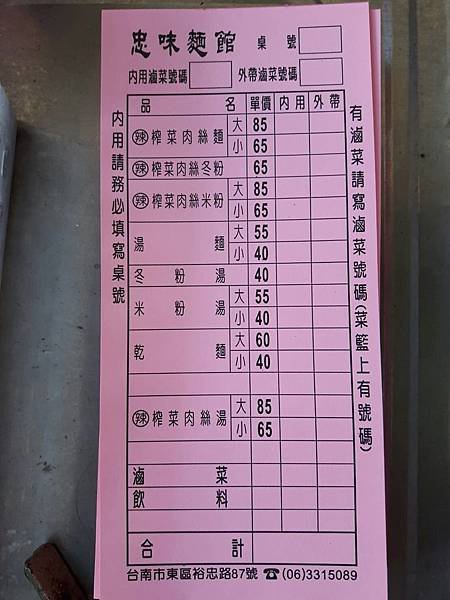 忠味麵館 桌號
內用滷菜號碼 外帶滷菜號碼
品名 單價 內用 外帶
辣 榨菜肉絲麵 大 85
小 65
辣 榨菜肉絲冬粉 65
辣 榨菜肉絲米粉 大 85
小 65
湯麵 大 55
小 40
冬粉湯 40
米粉湯 大 55
小 40
乾麵 大 60
小 40
辣 榨菜肉絲湯 大 85
小 65
滷菜
飲料
合計
內用請務必填寫桌號
有滷菜請寫滷菜號碼(菜籃上有號碼)
台南市東區裕忠路87號 ☎(06)3315089